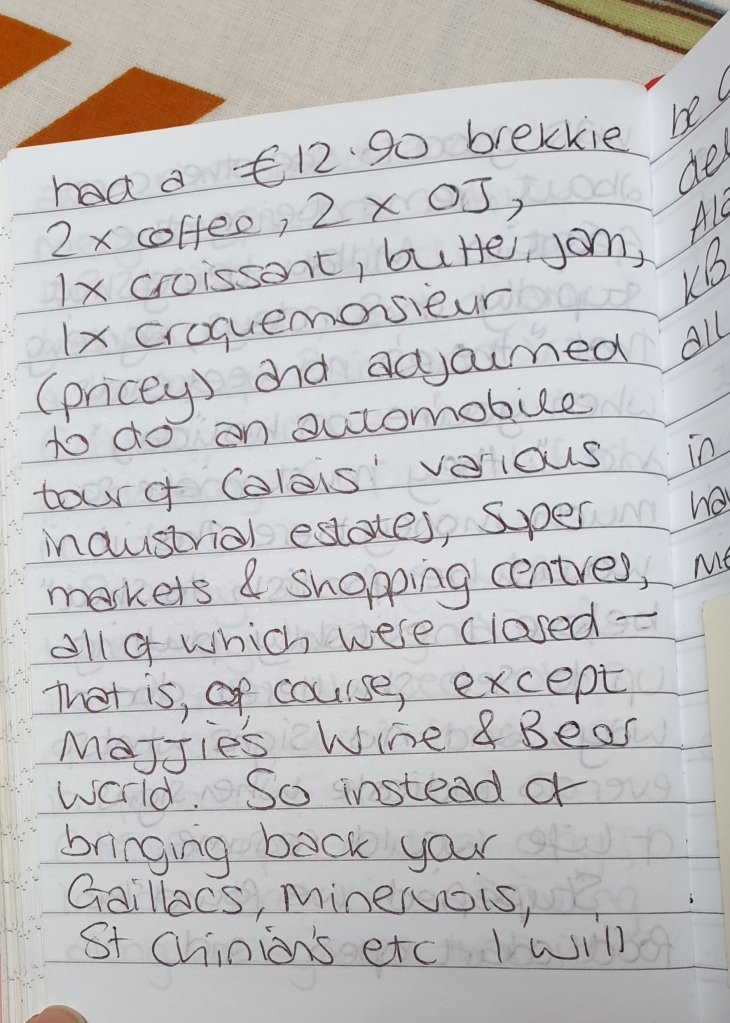 had a €12.90 brekkie
2 x coffee, 2 x OJ,
1x croissant, butter, jam,
1x croquemonsieur
(pricey) and adjourned
to do an automobile
tour of Calais' various
industrial estates, super
markets & shopping centres,
all of which were closed —
that is, of course, except
Majjie's Wine & Beer
World. So instead of
bringing back your
Gaillacs, Minervois,
St Chinian's etc I will
be
del
Alc
KB
all
in
ha
me